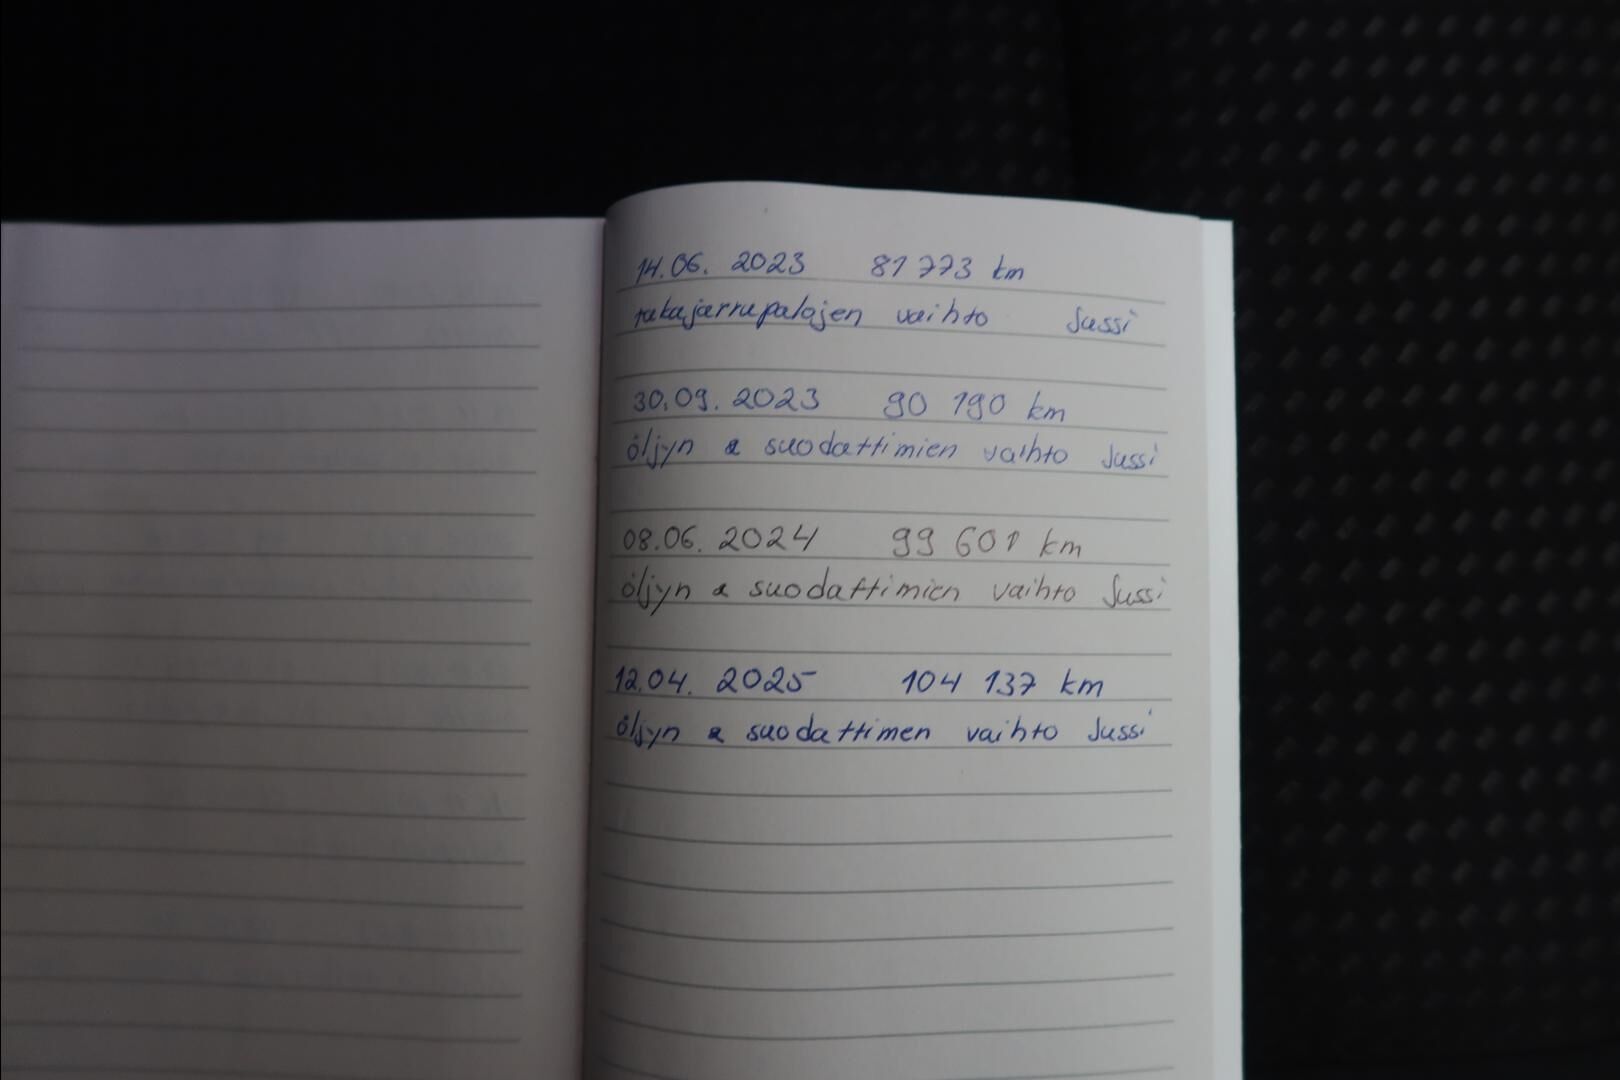 14.06. 2023 81 773 km
takajarrupalojen vaihto Jussi
30.09. 2023 90 190 km
öljyn & suodattimien vaihto Jussi
08.06. 2024 99 601 km
öljyn & suodattimien vaihto Jussi
12.04. 2025 104 137 km
öljyn & suodattimen vaihto Jussi